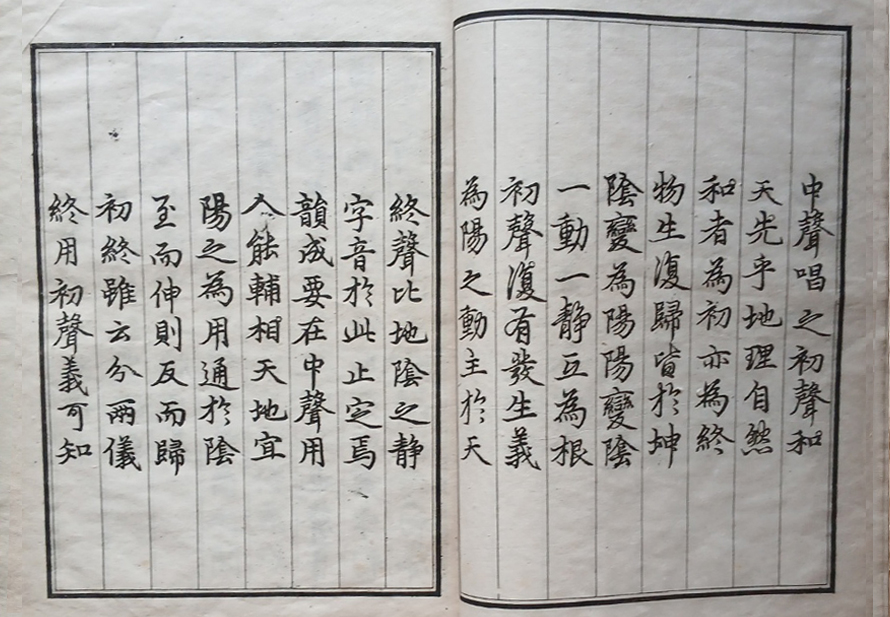 中聲唱之初聲和
天先乎地理自然
和者為初亦為終
物生復歸皆於坤
陰變為陽陽變陰
一動一静互為根
初聲復有發生義
為陽之動主於天
終聲比地陰之静
字音於此止定焉
韻成要在中聲用
人能輔相天地宜
陽之為用通於陰
至而伸則反而歸
初終雖云分兩儀
終用初聲義可知